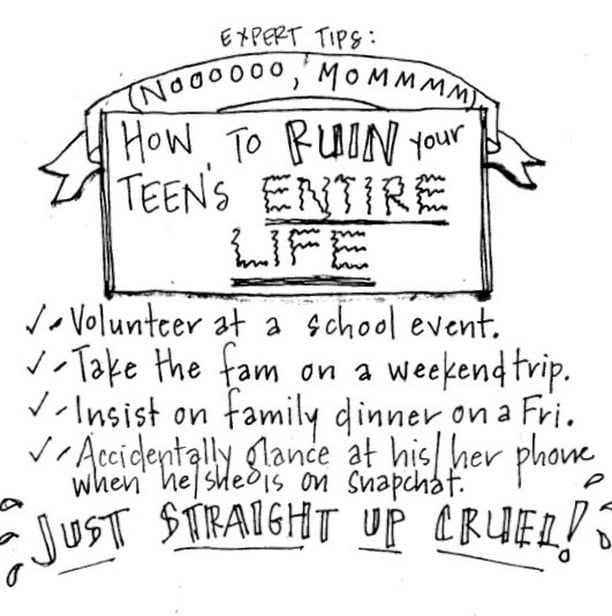 EXPERT TIPS:
(NOOOOOO, MOMMMM)
HOW TO RUIN your
TEEN'S ENTIRE
LIFE
✓ - Volunteer at a school event.
✓ - Take the fam on a weekend trip.
✓ - Insist on family dinner on a Fri.
✓ - Accidentally glance at his/her phone
when he/she is on Snapchat.
JUST STRAIGHT UP CRUEL!